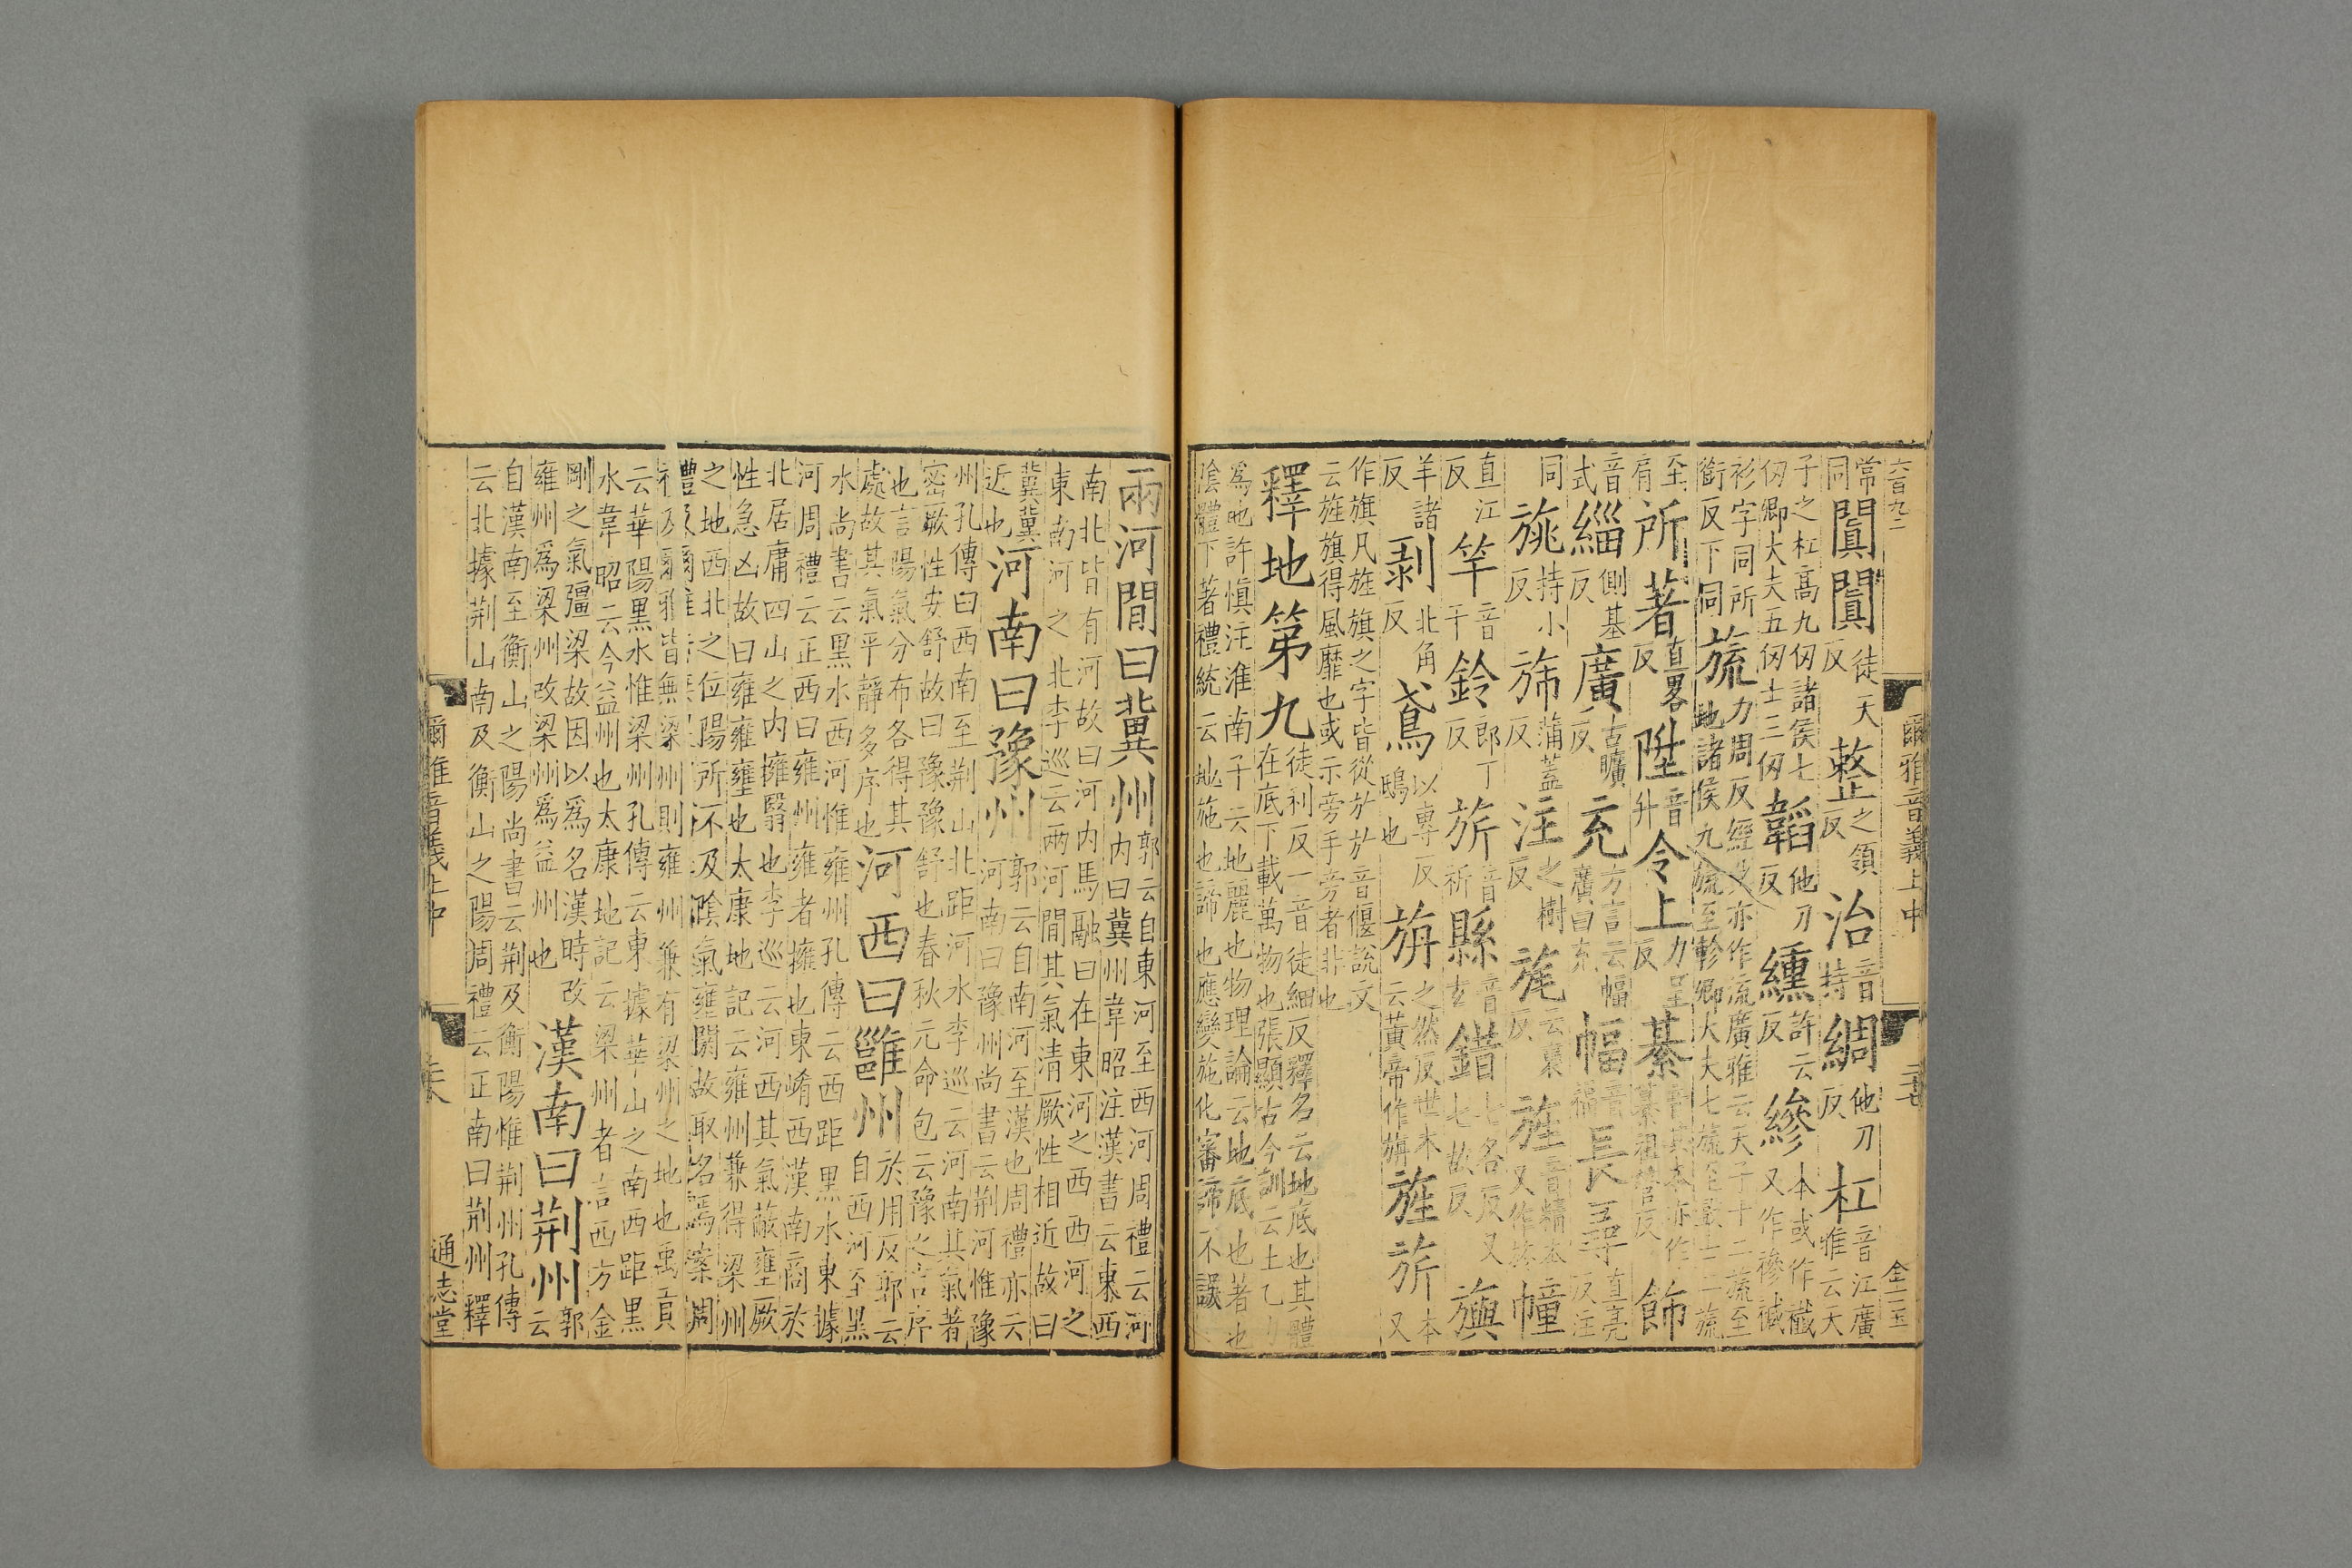 六百九二
爾雅音義上中
常同闐闐徒天反整之領反治音持綢他刀反杠音江廣雅云天
子之杠高九仞諸侯七仞卿大夫五仞士三仞韜他刀反纁許云反縿本或作襳又作襂襳
衫字同所銜反下同旒力周反經典亦作流廣雅云天子十二旒至地諸侯九旒至軫卿大夫七旒至轂士三旒
至肩所著直畧反陞音升令上力呈反綦飾
音式緇側基反廣古曠反充方言云幅廣曰充幅音福長尋直亮反注
同旐持小反旆蒲蓋反注之樹反旄旌音精本又作旍幢
直江反竿音干鈴郎丁反旂音祈縣音玄錯七各反又七故反旟
羊諸反剥北角反鳶以專反鴟也旃之然反世本云黃帝作旃旌旂本又
作旗凡旌旗之字皆從㫃㫃音偃說文云旌旗得風靡也或示旁手旁者非也
釋地第九徒利反一音徒細反釋名云地底也其體在底下載萬物也張顯古今訓云土乙力
爲地許慎注淮南子云地麗也物理論云地底也著也陰體下著禮統云地施也諦也應變施化審諦不誤
兩河間曰冀州郭云自東河至西河周禮云河内曰冀州韋昭注漢書云東西
南北皆有河故曰河内馬融曰在東河之西西河之東南河之北李巡云兩河間其氣清厥性相近故曰
冀冀近也河南曰豫州郭云自南河至漢也周禮亦云河南曰豫州尚書云荆河惟豫
州孔傳曰西南至荆山北距河水李巡云河南其氣著密厥性安舒故曰豫豫舒也春秋元命包云豫之言序
也言陽氣分布各得其處故其氣平靜多序也河西曰雝州於用反郭云自西河至黑
水尚書云黑水西河惟雍州孔傳云西距黑水東據河周禮云正西曰雍州雍者擁也東崤西漢南商於
北居庸四山之内擁翳也李巡云河西其氣蔽壅厥性急凶故曰雍雍壅也太康地記云雍州兼得梁州
之地西北之位陽所不及陰氣壅閼故取名焉案周禮及爾雅
皆無梁州則雍州兼有梁州之地也禹貢
云華陽黑水惟梁州孔傳云東據華山之南西距黑水韋昭云今益州也太康地記云梁州者言西方金
剛之氣彊梁故因以爲名漢時改雍州爲梁州改梁州爲益州也漢南曰荆州郭云
自漢南至衡山之陽尚書云荆及衡陽惟荆州孔傳云北據荆山南及衡山之陽周禮云正南曰荆州釋
爾雅音義上中
通志堂